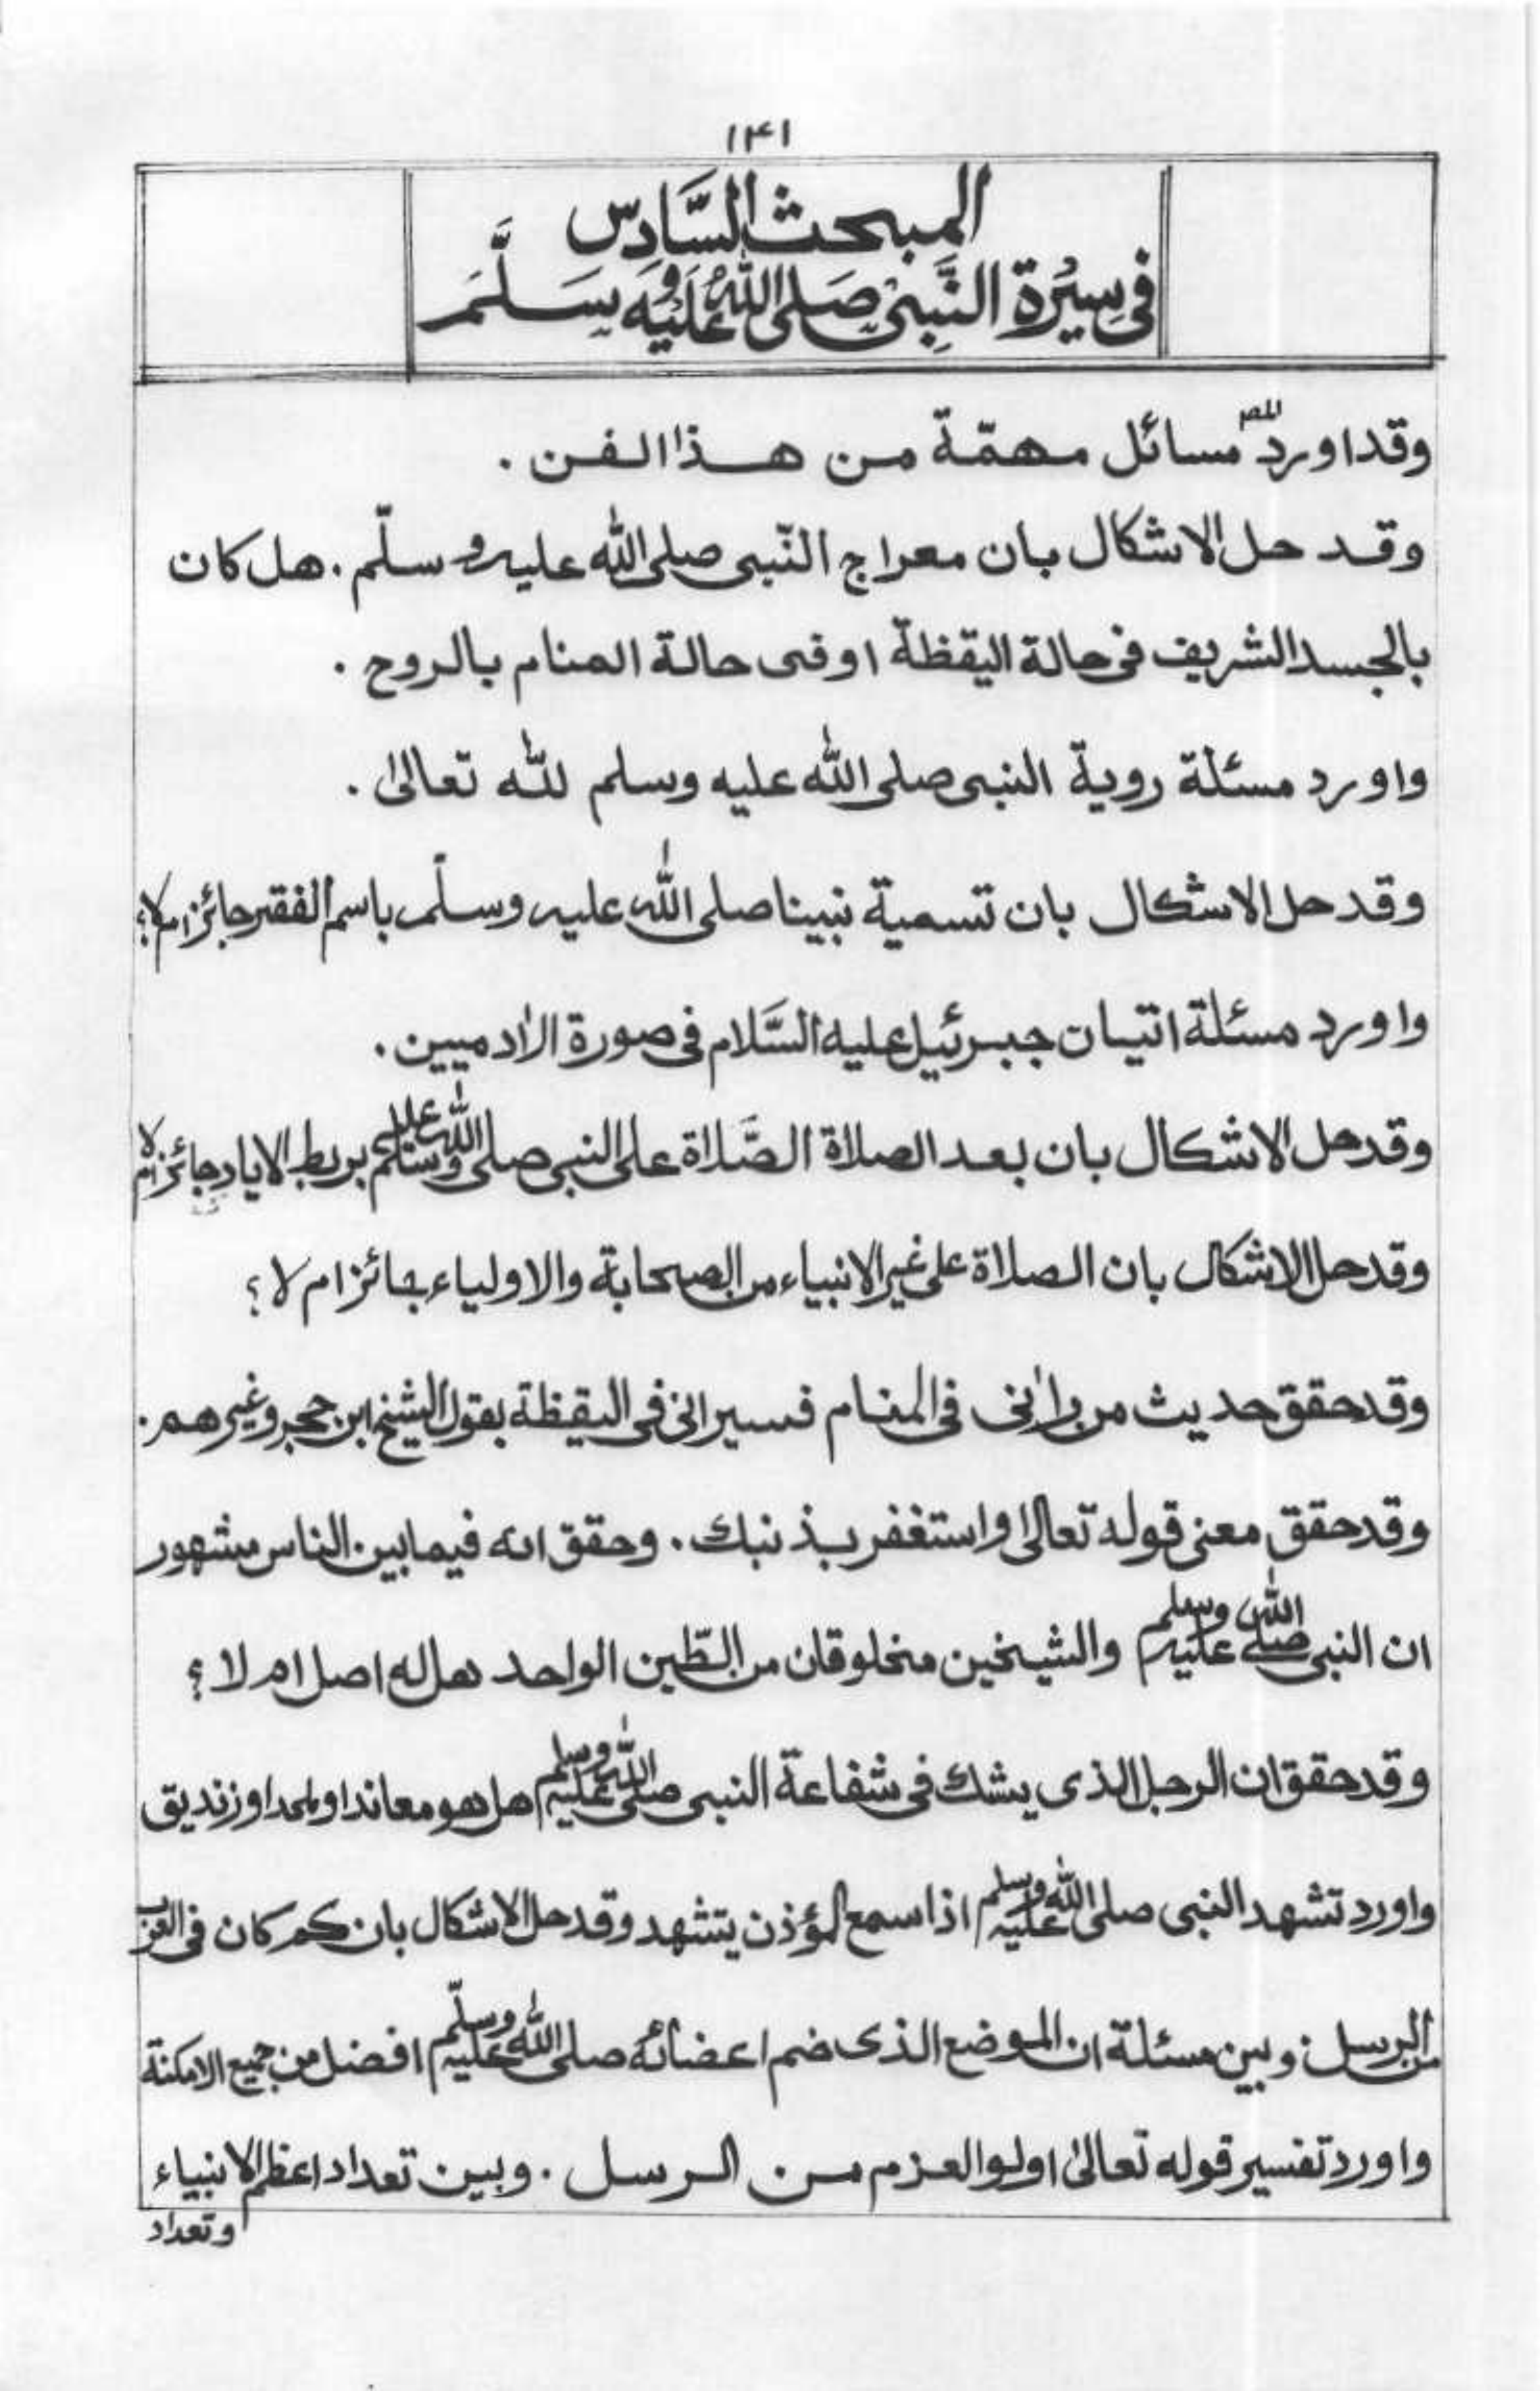 ۱۴۱
المبحث السَّادِسّ
فِي سِيْرَةِ النَّبِيْ صَلى اللهُ عَلَيْهِ وَسَلَّمَ
وقد اورد المصّ مسائل مهمّة من هذا الفن .
وقد حل الاشكال بان معراج النّبى صلى الله عليه وسلّم . هل كان
بالجسد الشريف فى حالة اليقظة او فى حالة المنام بالروح .
واورد مسئلة روية النبى صلى الله عليه وسلم لله تعالىٰ .
وقد حل الاشكال بان تسمية نبينا صلى الله عليه وسلّم باسم الفقر جائز ام لا؟
واورد مسئلة اتيان جبرئيل عليه السَّلام فى صورة الاٰدميين .
وقد حل الاشكال بان بعد الصلاة الصَّلاة على النبى صلى الله عليه وسلم بربط الاياد جائز ام لا
وقد حل الاشكال بان الصلاة على غير الانبياء من الصحابة والاولياء جائز ام لا ؟
وقد حقق حديث من راٰنى فى المنام فسيرانى فى اليقظة بقول الشيخ ابن حجر وغيرهم .
وقد حقق معنى قوله تعالىٰ واستغفر بذنبك . وحقق انه فيما بين الناس مشهور
ان النبى صلى الله عليه وسلم والشيخين مخلوقان من الطّين الواحد هل له اصل ام لا ؟
وقد حقق ان الرجل الذى يشك فى شفاعة النبى صلى الله عليه وسلم هل هو معاند او ملحد او زنديق
واورد تشهد النبى صلى الله عليه وسلم اذا سمع المؤذن يتشهد وقد حل الاشكال بان كم كان فى العرب
من الرسل . وبين مسئلة ان الموضع الذى ضم اعضائه صلى الله عليه وسلّم افضل من جميع الامكنة
واورد تفسير قوله تعالىٰ اولو العزم من الرسل . وبين تعداد اعظم الانبياء
وتعداد